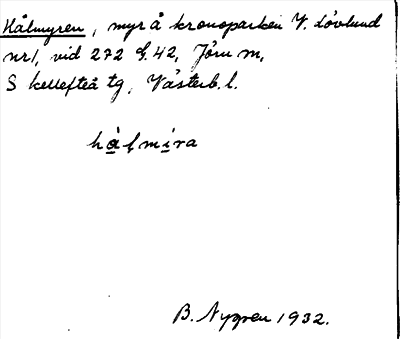 Hålmyren, myr å kronoparken V. Lövlund
nr 1, vid 272 S. 42, Jörn sn,
Skellefteå tg, Västerb. l.
hålmira
B. Nygren 1932.